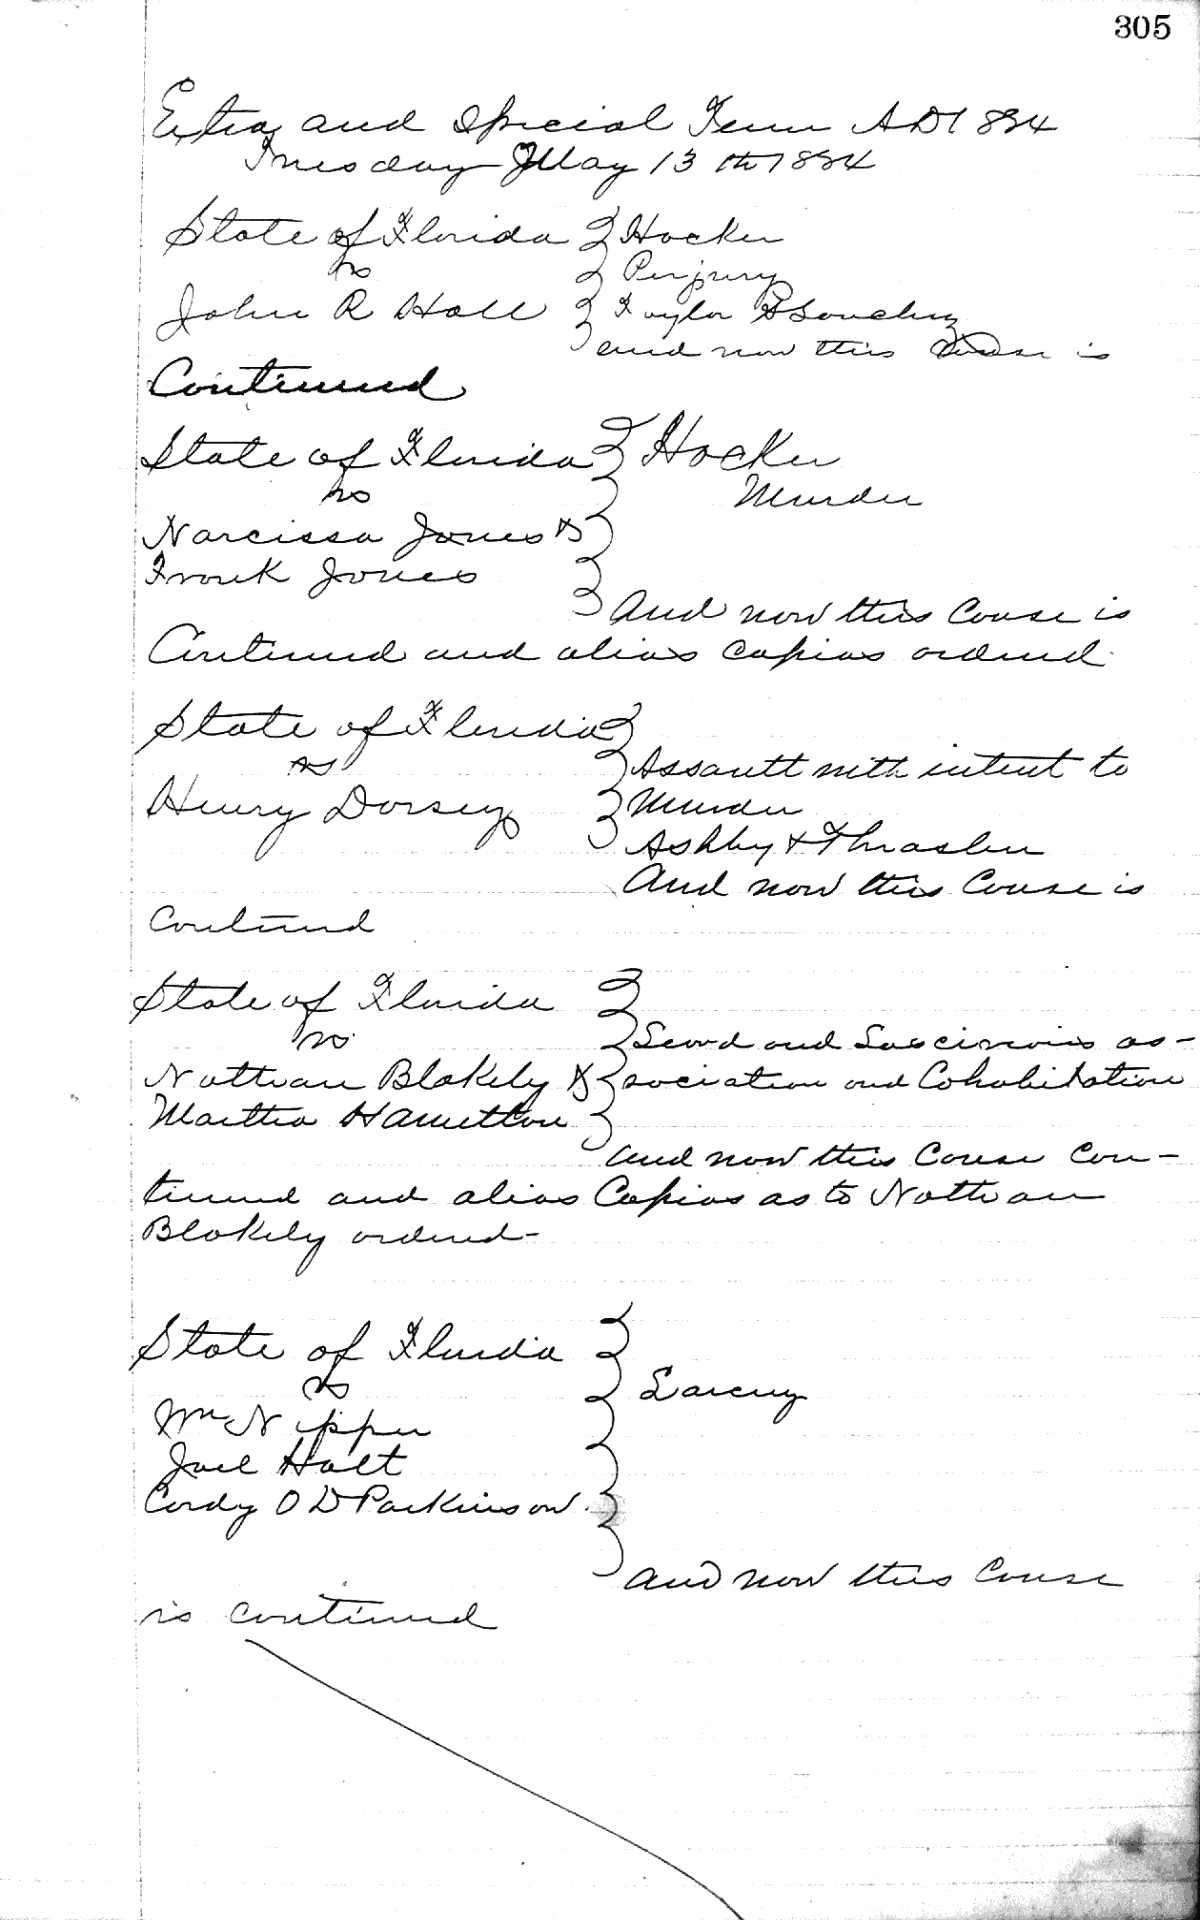 305
Extra and Special Term AD 1884
Tuesday May 13th 1884
State of Florida Hocker
vs Perjury
John R Hall Taylor &
and now this Cause is
Continued
State of Florida Hocker
vs Murder
Narcissa Jones &
Frank Jones
And now this Cause is
Continued and alias capias ordered
State of Florida
vs Assault with intent to
Henry Dorsey Murder
Ashby & Thrasher
And now this Cause is
Continued
State of Florida
vs Lewd and Lascivious as-
Nathan Blakely & sociation and Cohabitation
Martha Hamilton
and now this Cause Con-
tinued and alias Capias as to Nathan
Blakely ordered-
State of Florida
vs Larceny
Wm Nipper
Joel Holt
Cordy O D Parkinson
and now this Cause
is continued